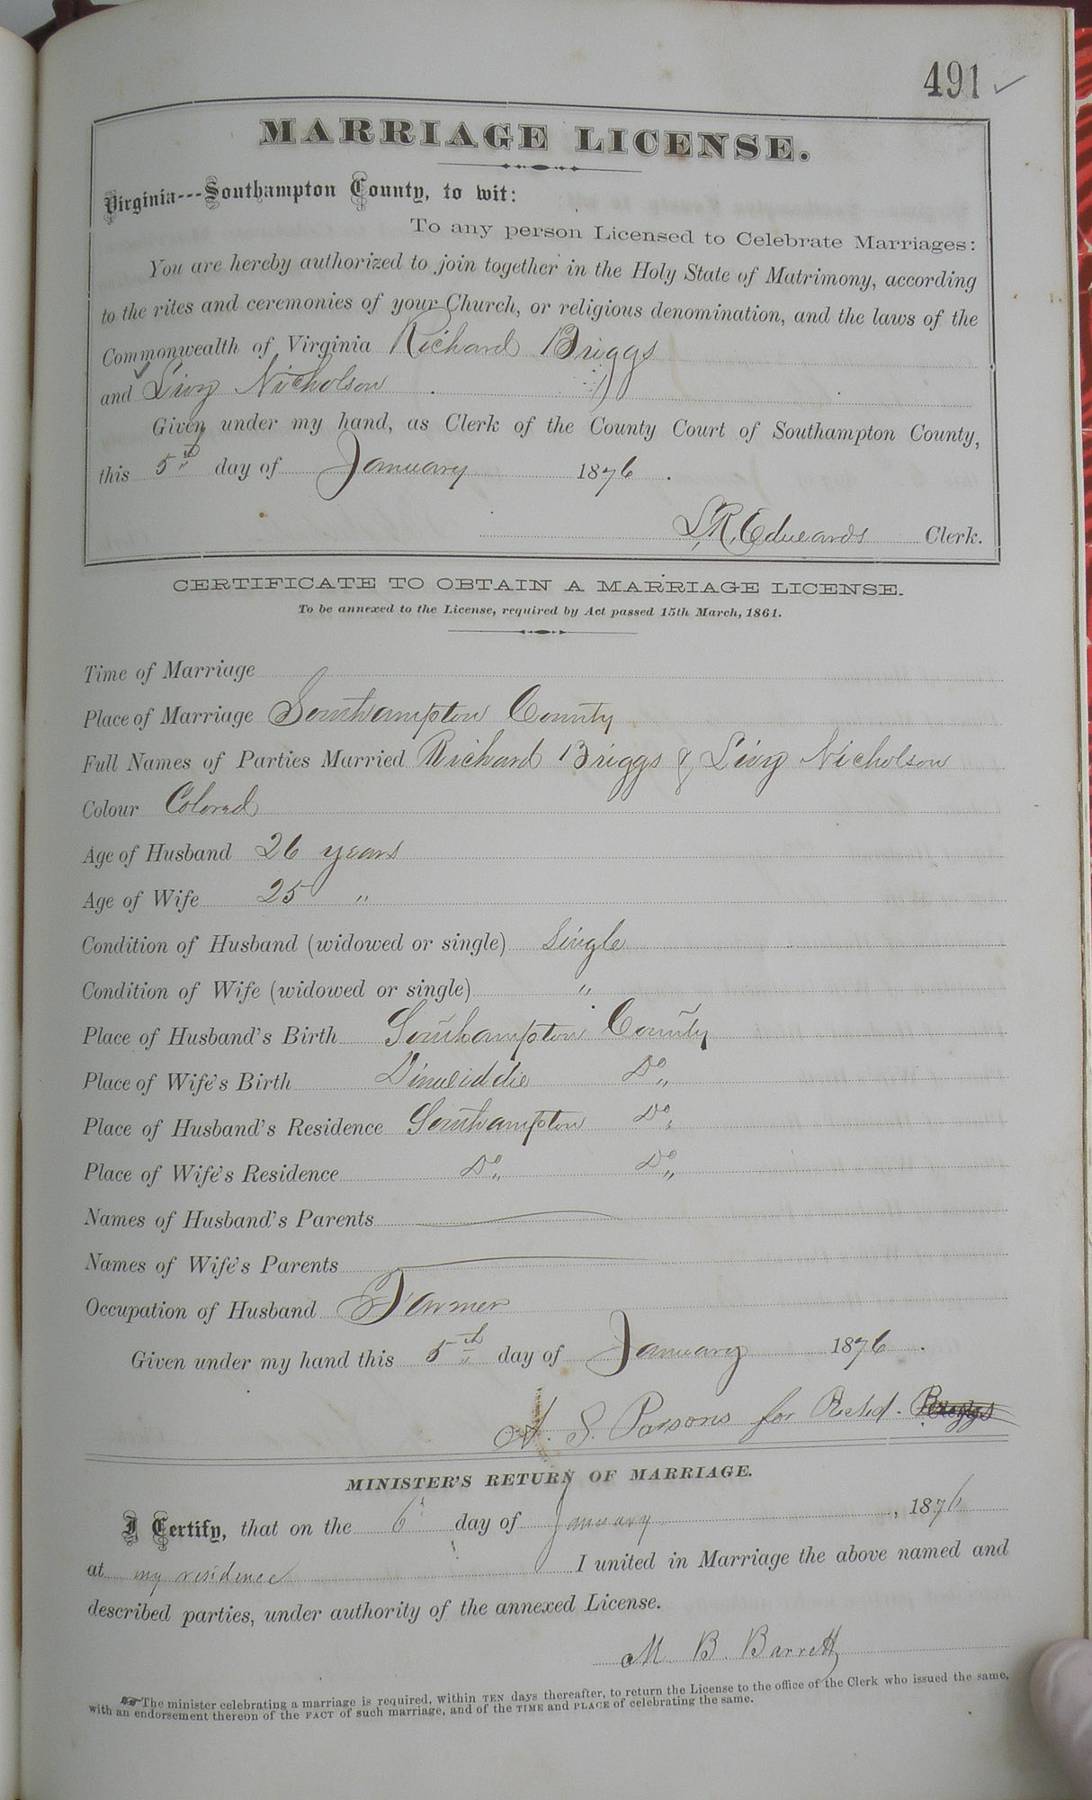 491 ✓
MARRIAGE LICENSE.
Virginia---Southampton County, to wit:
To any person Licensed to Celebrate Marriages:
You are hereby authorized to join together in the Holy State of Matrimony, according
to the rites and ceremonies of your Church, or religious denomination, and the laws of the
Commonwealth of Virginia Richard Briggs
and Livy Nicholson
Given under my hand, as Clerk of the County Court of Southampton County,
this 5th day of January 1876.
L. R. Edwards Clerk.
CERTIFICATE TO OBTAIN A MARRIAGE LICENSE.
To be annexed to the License, required by Act passed 15th March, 1861.
Time of Marriage
Place of Marriage Southampton County
Full Names of Parties Married Richard Briggs & Livy Nicholson
Colour Colored
Age of Husband 26 years
Age of Wife 25 "
Condition of Husband (widowed or single) Single
Condition of Wife (widowed or single) "
Place of Husband's Birth Southampton County
Place of Wife's Birth Dinwiddie Do
Place of Husband's Residence Southampton Do
Place of Wife's Residence Do Do
Names of Husband's Parents
Names of Wife's Parents
Occupation of Husband Farmer
Given under my hand this 5th day of January 1876.
S. Parsons for Richd. Briggs
MINISTER'S RETURN OF MARRIAGE.
I Certify, that on the 6 day of January, 1876
at my residence I united in Marriage the above named and
described parties, under authority of the annexed License.
M B Barrett
The minister celebrating a marriage is required, within TEN days thereafter, to return the License to the office of the Clerk who issued the same,
with an endorsement thereon of the FACT of such marriage, and of the TIME and PLACE of celebrating the same.